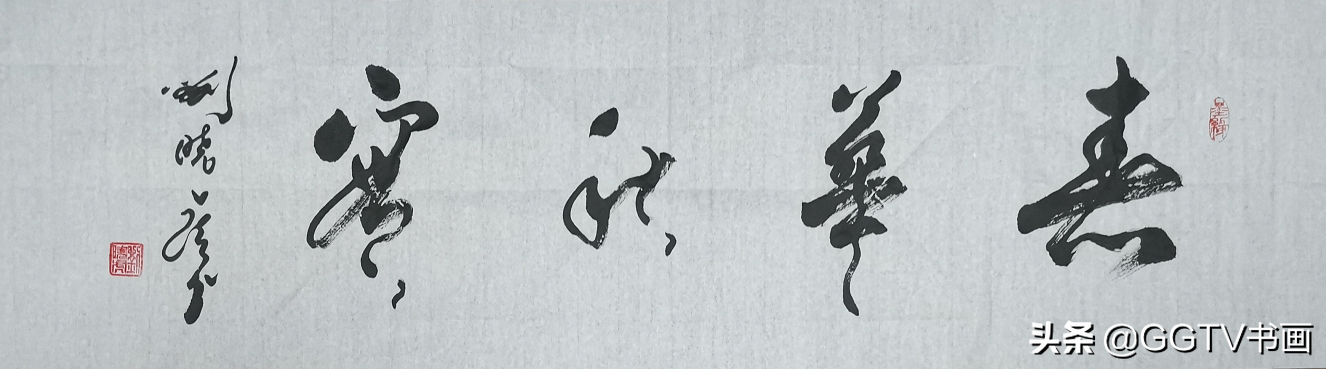 春華秋實
劉曉
头条 @GGTV书画